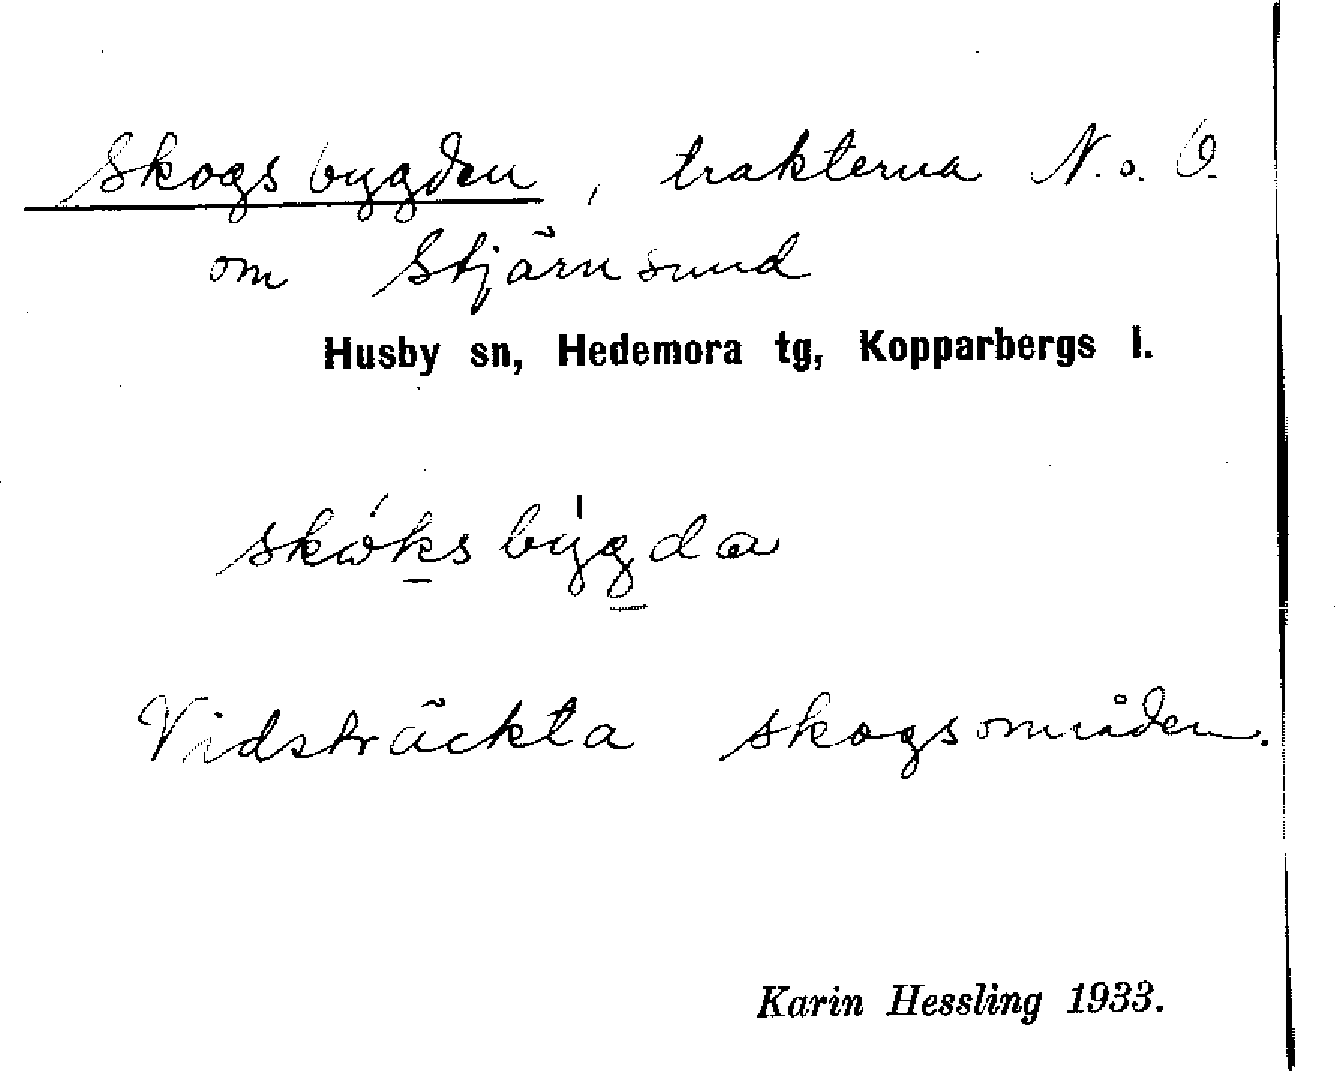 Skogsbygden, trakterna N. o. Ö.
om Stjärnsund
Husby sn, Hedemora tg, Kopparbergs l.
skóksbýgda
Vidsträckta skogsområden.
Karin Hessling 1933.